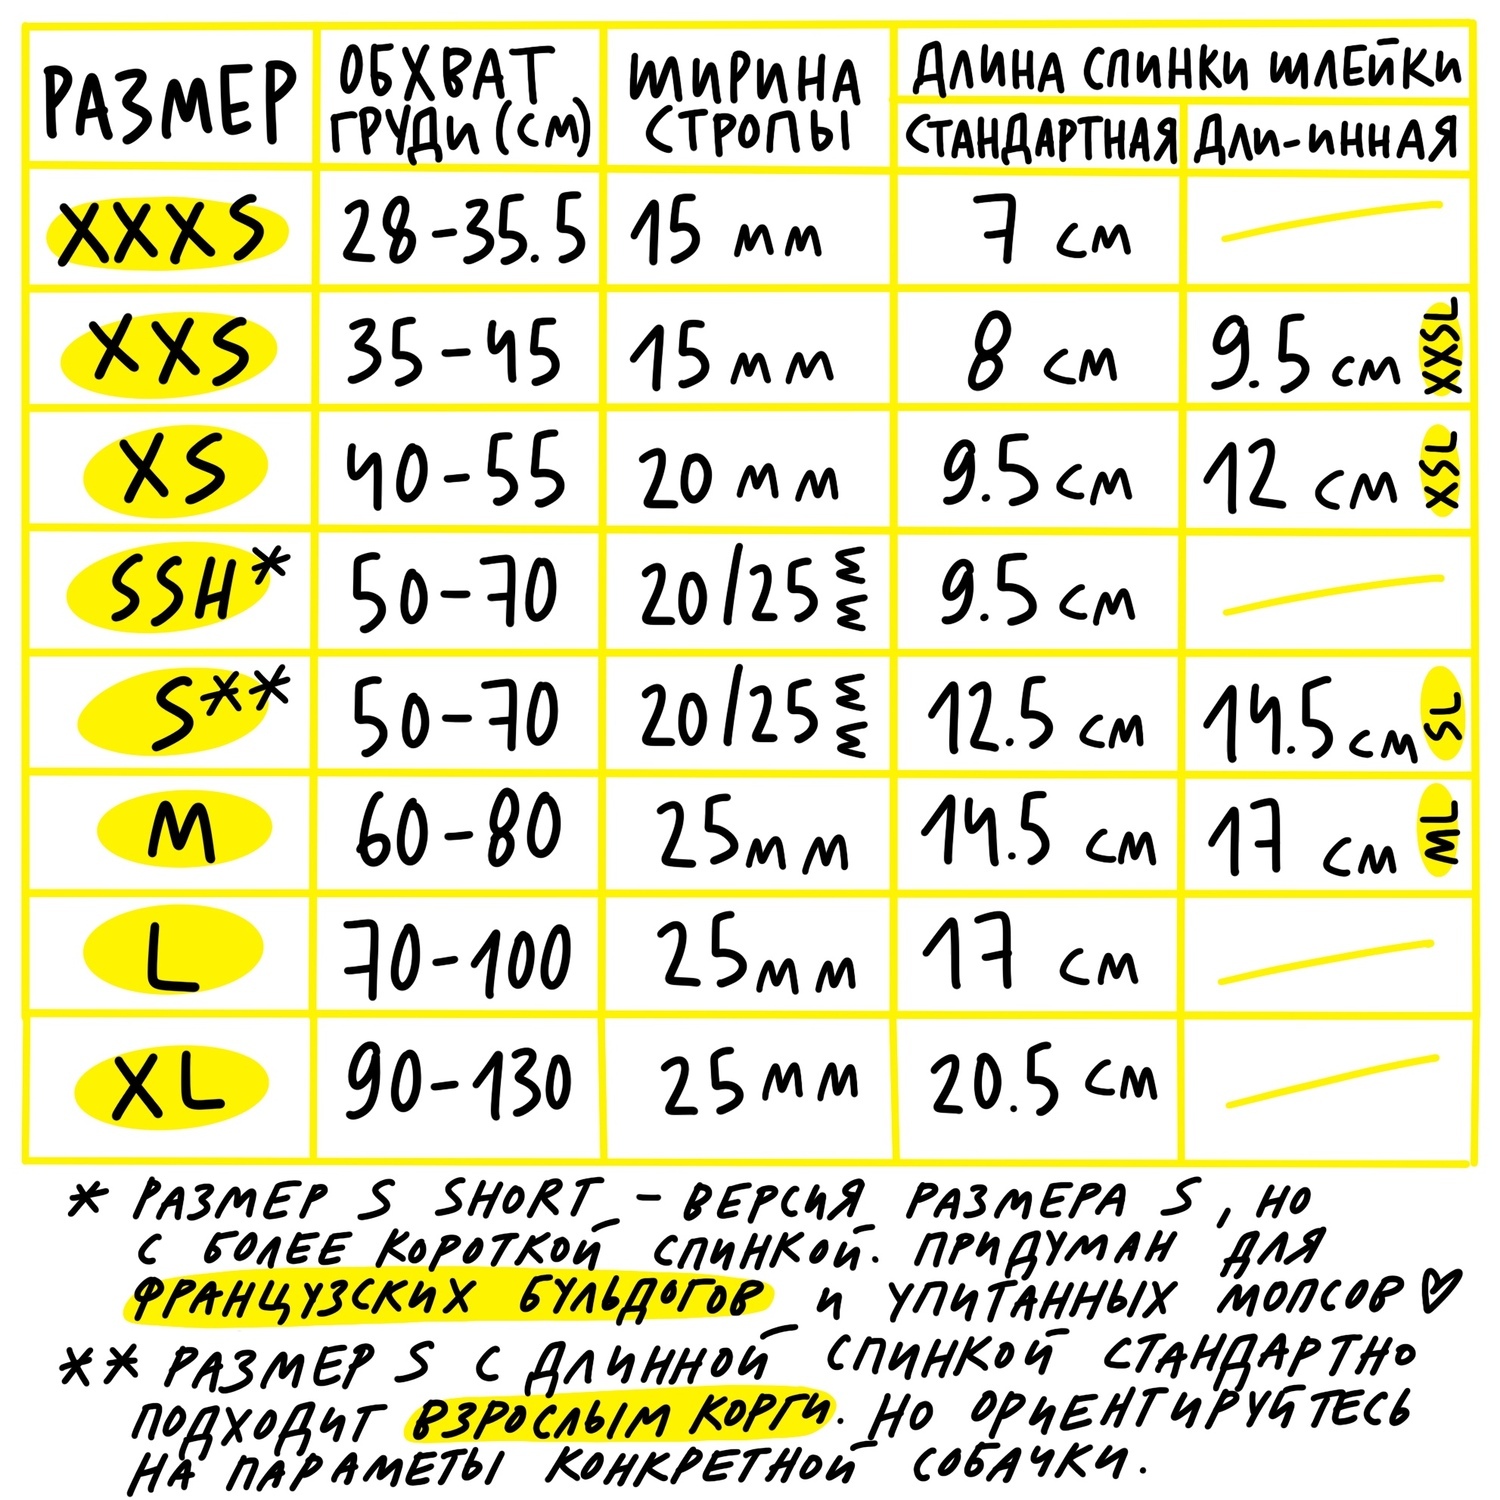 РАЗМЕР
ОБХВАТ
ГРУДИ (СМ)
ШИРИНА
СТРОПЫ
ДЛИНА СПИНКИ ШЛЕЙКИ
СТАНДАРТНАЯ
ДЛИ-ИННАЯ
XXXS
28-35.5
15 мм
7 см
XXS
35-45
15 мм
8 см
9.5 см
XXSL
XS
40-55
20 мм
9.5 см
12 см
XSL
SSH*
50-70
20/25 мм
9.5 см
S**
50-70
20/25 мм
12.5 см
14.5 см
SL
M
60-80
25 мм
14.5 см
17 см
ML
L
70-100
25 мм
17 см
XL
90-130
25 мм
20.5 см
* РАЗМЕР S SHORT - ВЕРСИЯ РАЗМЕРА S, НО
С БОЛЕЕ КОРОТКОЙ СПИНКОЙ. ПРИДУМАН ДЛЯ
ФРАНЦУЗСКИХ БУЛЬДОГОВ И УПИТАННЫХ МОПСОВ ♡
** РАЗМЕР S С ДЛИННОЙ СПИНКОЙ СТАНДАРТНО
ПОДХОДИТ ВЗРОСЛЫМ КОРГИ. НО ОРИЕНТИРУЙТЕСЬ
НА ПАРАМЕТЫ КОНКРЕТНОЙ СОБАЧКИ.